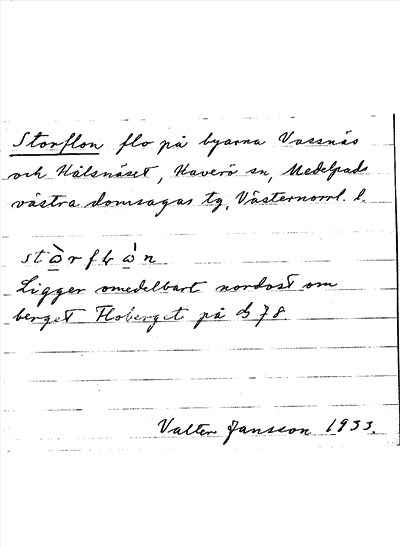 Storflon flo på byarna Vassnäs
och Kälsnäset, Haverö sn, Medelpads
västra domsagas tg, Västernorrl. l.
Ligger omedelbart nordost om
berget Floberget på b 78.
Valter Jansson 1933.